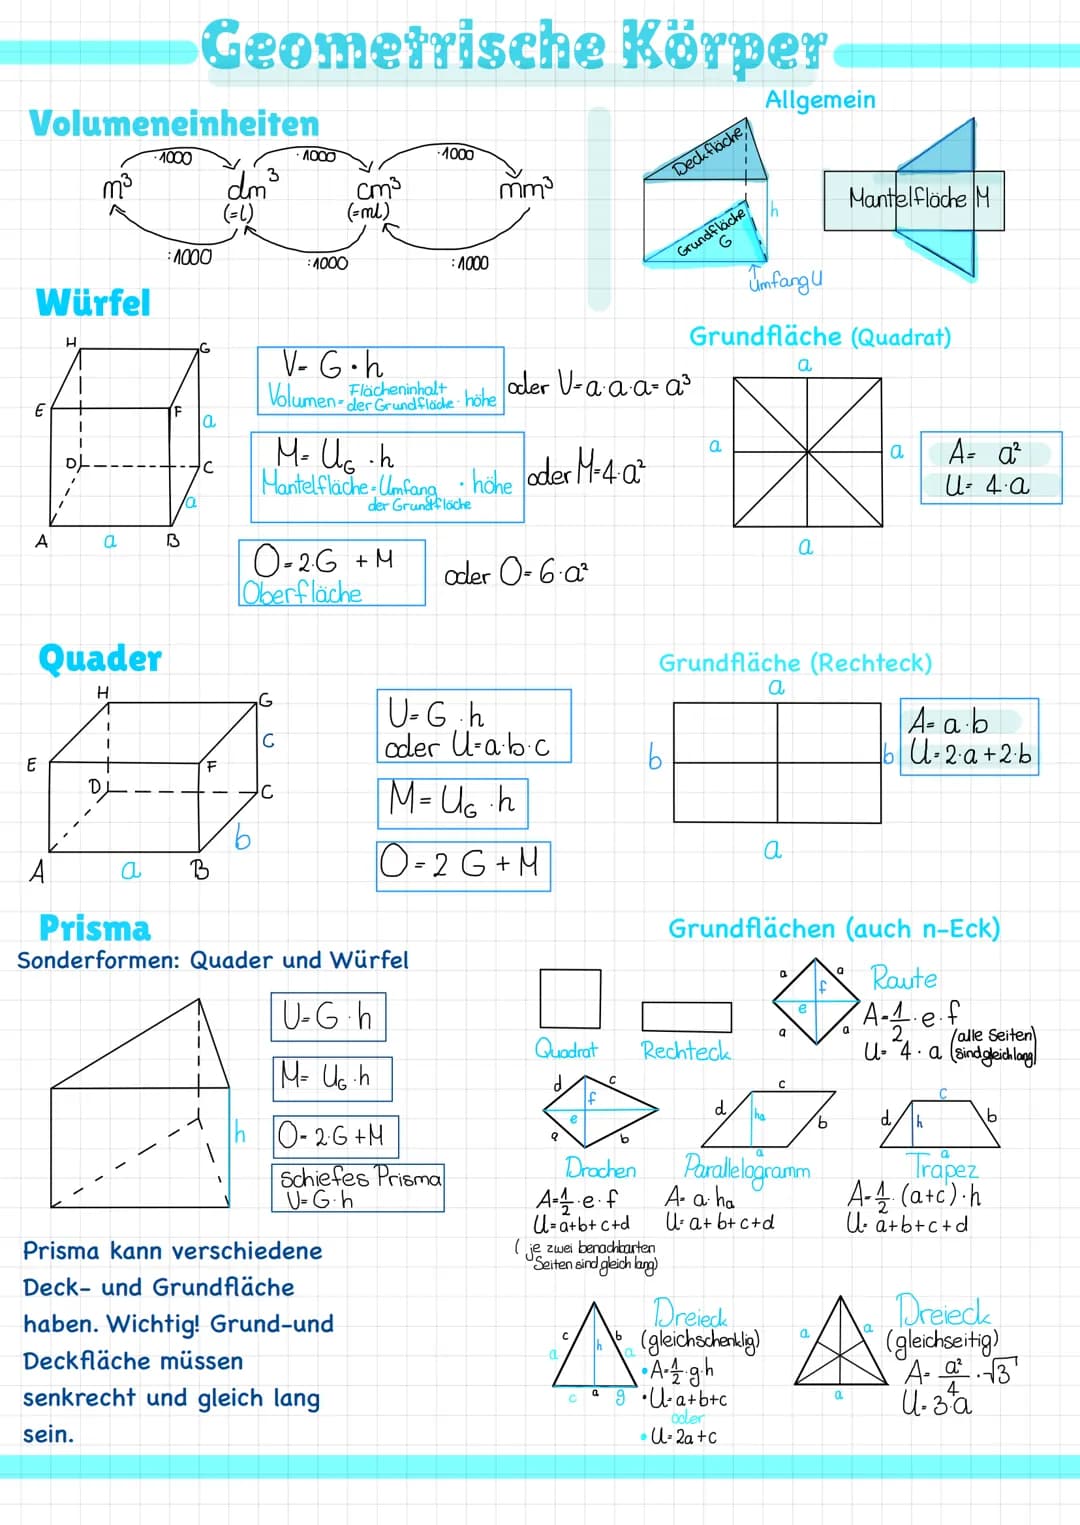 Geometrische Körper
Volumeneinheiten
·1000 ·1000 ·1000
m³ dm³ cm³ mm³
(=l) (=ml)
:1000 :1000 :1000
Allgemein
Deckfläche
Grundfläche
G
h
Umfang U
Mantelfläche M
Würfel
H G
E F
a
D C
a
A a B
V= G·h
Volumen= Flächeninhalt der Grundfläche · höhe
oder V=a·a·a=a³
M= U_G ·h
Mantelfläche=Umfang der Grundfläche · höhe
oder M=4·a²
O=2·G +M
Oberfläche
oder O=6·a²
Grundfläche (Quadrat)
a
a a
a
A= a²
U= 4·a
Quader
H G
c
E F
D C
b
A a B
U=G·h
oder U=a·b·c
M=U_G ·h
O=2 G+M
Grundfläche (Rechteck)
a
b b
a
A=a·b
U=2·a+2·b
Prisma
Sonderformen: Quader und Würfel
h
U=G·h
M= U_G·h
O=2·G+M
schiefes Prisma
U=G·h
Prisma kann verschiedene
Deck- und Grundfläche
haben. Wichtig! Grund-und
Deckfläche müssen
senkrecht und gleich lang
sein.
Grundflächen (auch n-Eck)
Quadrat
Rechteck
a a
f
e
a a
Raute
A=1/2·e·f
U= 4·a (alle Seiten sind gleich lang)
d c
f
e
a b
Drachen
A=1/2·e·f
U=a+b+c+d
(je zwei benachbarten
Seiten sind gleich lang)
c
d ha b
a
Parallelogramm
A=a·ha
U=a+b+c+d
c
d h b
a
Trapez
A=1/2·(a+c)·h
U=a+b+c+d
c b
a h a
c a g
Dreieck
(gleichschenklig)
•A=1/2·g·h
•U=a+b+c
oder
•U=2a+c
a a
a
Dreieck
(gleichseitig)
A= a²/4 ·√3
U=3·a